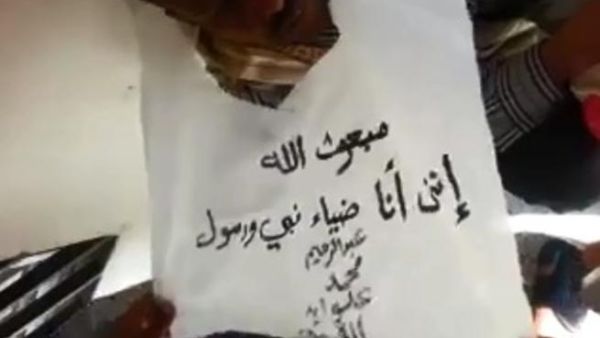 مبعوث الله
إنني أنا ضياء نبي ورسول
عبدالرحيم
محمد